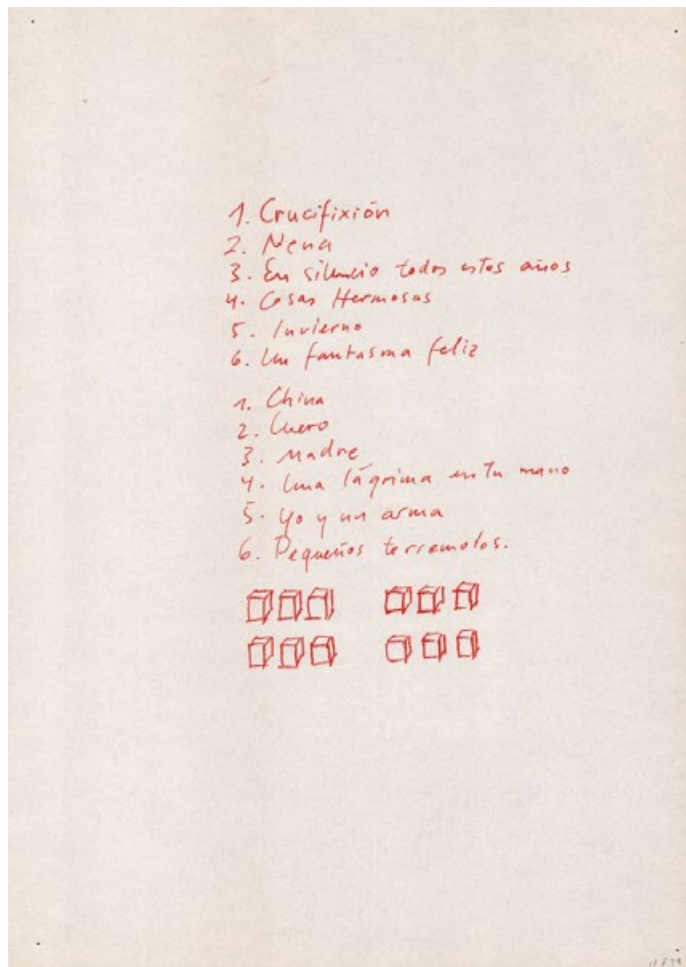 1. Crucifixión
2. Nena
3. En silencio todos estos años
4. Cosas Hermosas
5. Invierno
6. Un fantasma feliz
1. China
2. Cuero
3. Madre
4. Una lágrima en tu mano
5. Yo y un arma
6. Pequeños terremotos.